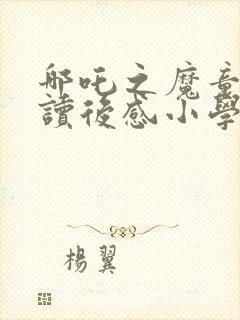 哪吒之魔童
讀後感小學
楊翼